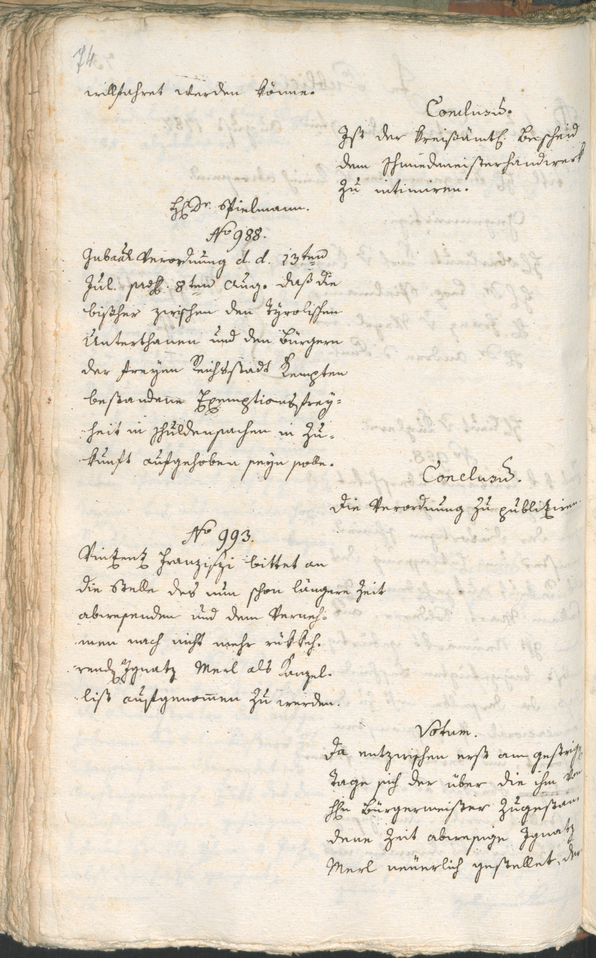 74
willfahret werden könne.
Conclusũ.
Ist der kreißämtl. Bescheid
dem Schmiedmeisterhandwerk
zu intimiren.
H. Dr. Spielmann.
No 988.
Gubaal Verordnung d. d. 13ten
Jul. praes. 8ten Aug. daß die
bisher zwischen den Tyrolischen
Unterthanen und den Bürgern
der freyen Reichsstadt Kempten
bestandene Exemptionsfrey-
heit in Schuldensachen in Zu-
kunft aufgehoben seyn solle.
Conclusũ.
Die Verordnung zu publiziren
No 993.
Vinzenz Franziszi bittet an
die Stelle des nun schon längere Zeit
abwesenden und dem Verneh-
men nach nicht mehr rükkeh-
rend Ignatz Merl als Kanzel-
list aufgenom̅en zu werden.
Votum.
Da entzwischen erst am gestrig
Tage sich der über die ihm von
Hn Bürgermeister zugestan
dene Zeit abwesige Ignatz
Merl neuerlich gestellet, der